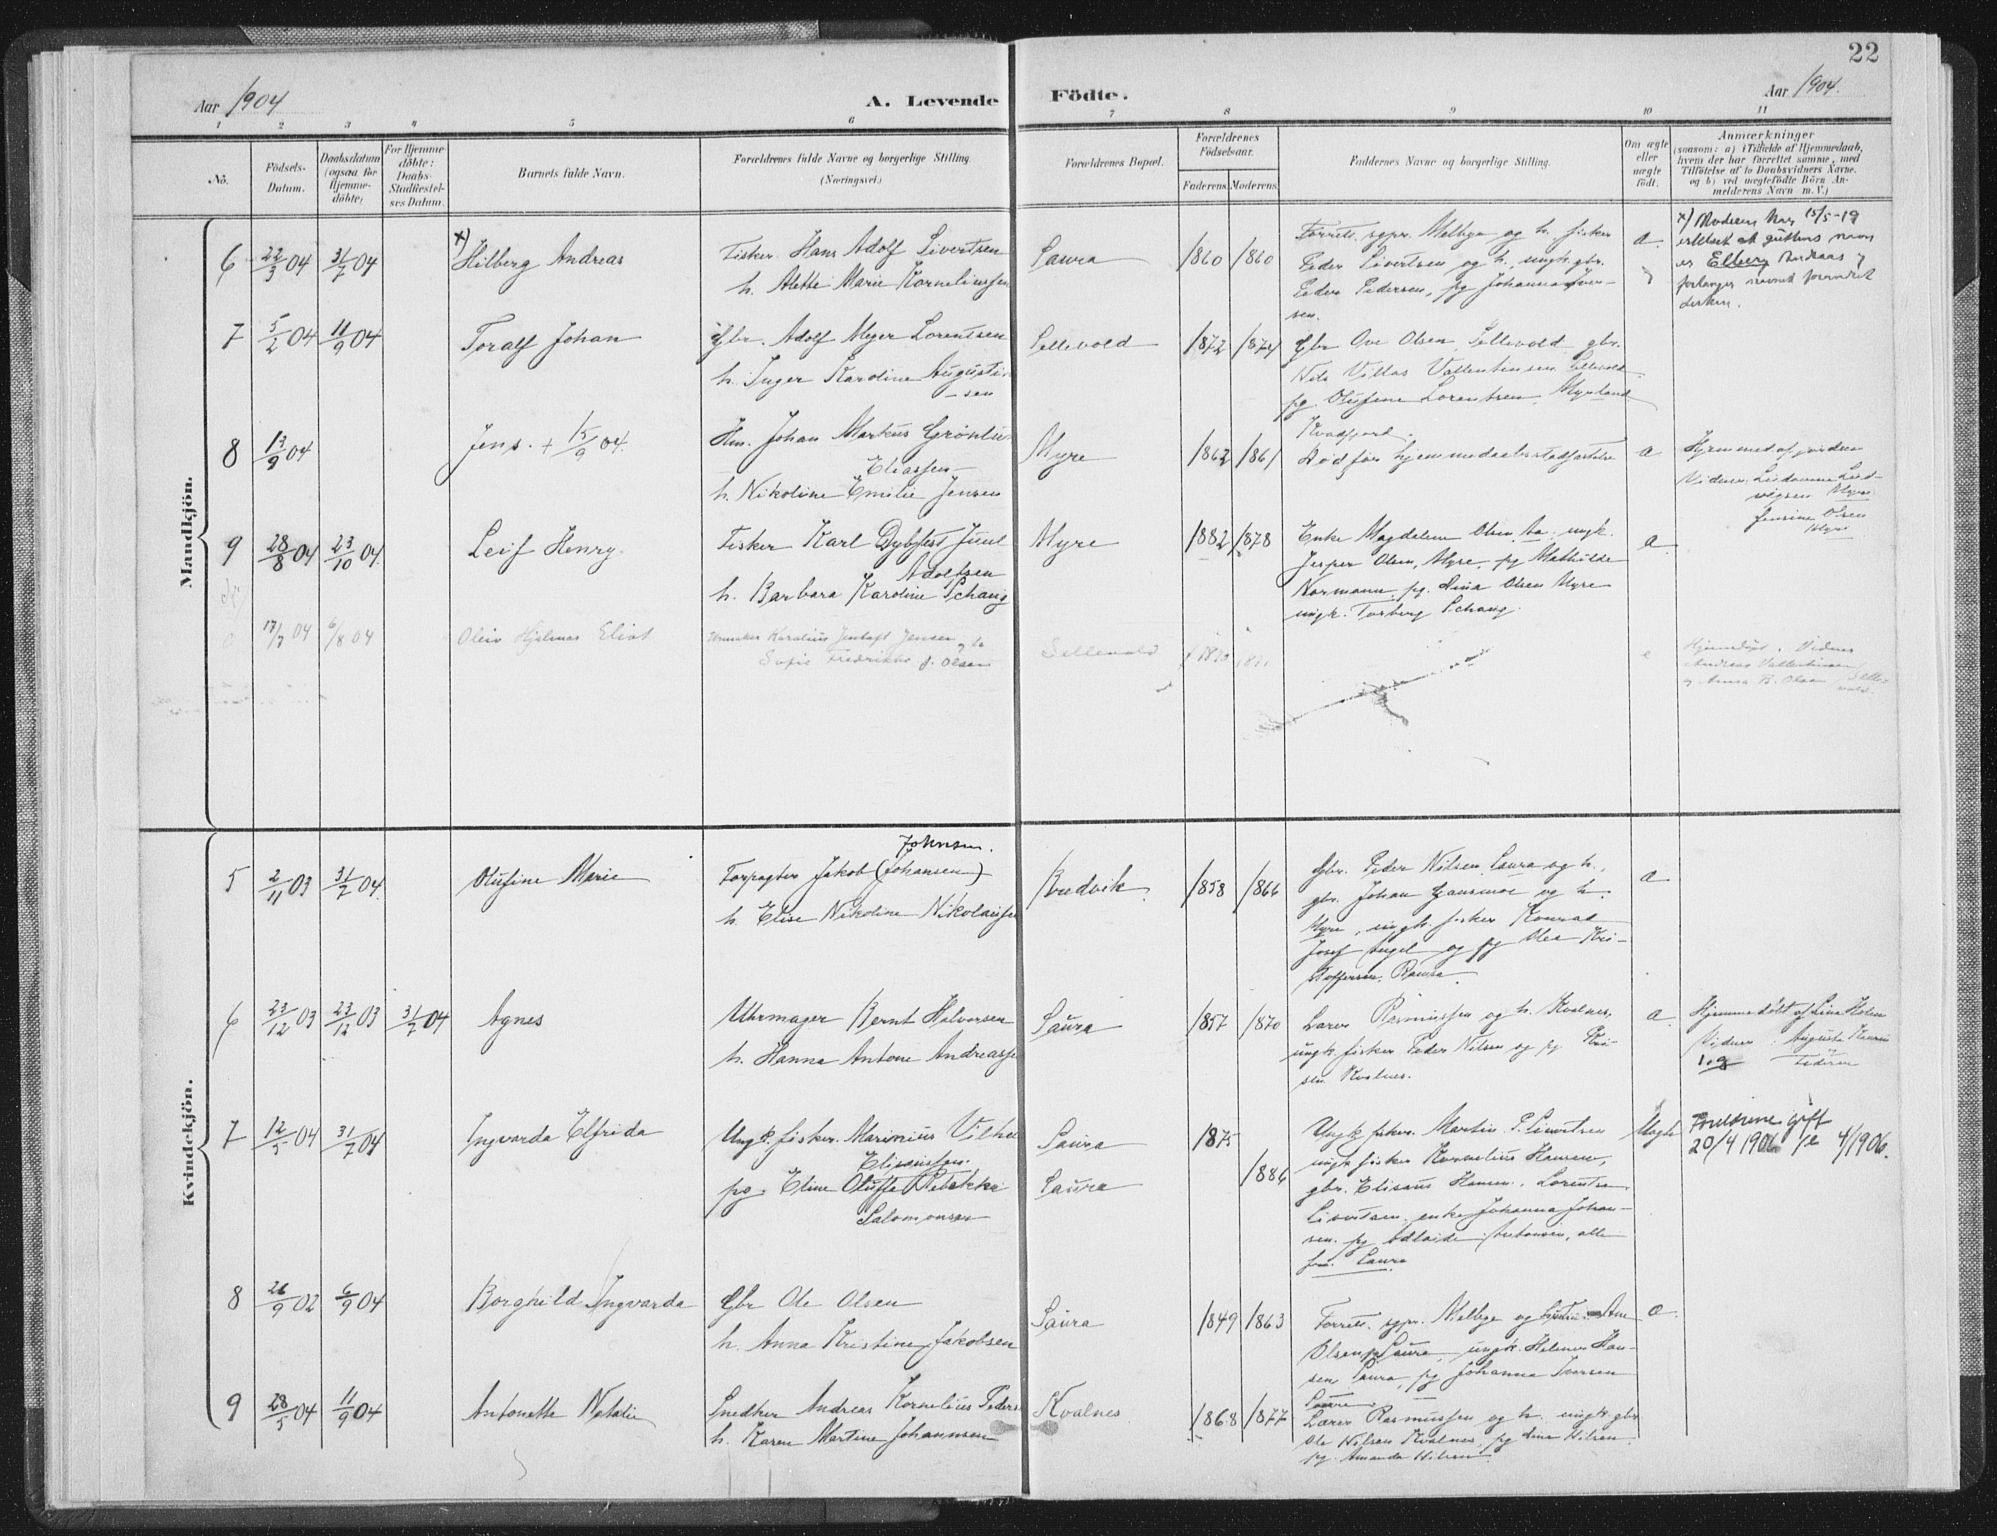 22
Aar 1904
A. Levende Födte.
Aar 1904.
1 2 3 4 5 6 7 8 9 10 11
No.
Födsels-
Datum.
Daabsdatum
(ogsaa for
Hjemme-
döbte)
For Hjemme-
döbte:
Daabs-
Stadfæstel-
ses Datum.
Barnets fulde Navn.
Forældrenes fulde Navne og borgerlige Stilling.
(Næringsvei.)
Forældrenes Bopæl.
Forældrenes
Födselsaar.
Faderens. Moderens.
Faddernes Navne og borgerlige Stilling.
Om ægte
eller
uægte
født.
Anmærkninger
(saasom: a) i Tilfælde af Hjemmedaab,
hvem der har forrettet samme, med
Tilføielse af to Daabsvidners Navne.
og b) ved uægtefödte Börn An-
melderens Navn m. V.)
Mandkjön.
6 22/3 04 31/7 04
x) Hilberg Andreas
Fisker Hans Adolf Sivertsen
h. Alette Marie Kornelius
Saura 1860 1860
Forrett. sgpr. Melbye og h. fisker
Peder Sivertsen og h., ungk. gbr.
Peder Pedersen, pg Johanna Iver-
sen.
a
x) Moderen har 15/5-19
erklært at guttens navn
er Elberg Andreas og
forlanger navnet forandret
7 5/2 04 11/9 04
Toralf Johan
Gbr. Adolf Meyer Lorentsen
h. Inger Karoline Augustin
-sen
Sellevold 1872 1874
Gbr Ove Olsen Sellevold gbr.
Nils Villas Vallentinsen Sellevold
pg. Olufine Lorentsen, Mynland
Kvadfjord.
8 13/9 04
Jens. + 15/9 04.
Hm. Johan Markus Grönlu
Eliassen
h. Nikoline Emilie Jensen
Myre 1862 1861
Död før hjemmedaabsstadfæstelse
a
Hjemmed af jordem
Vidner
Jensine Olsen
Myre
9 28/8 04 23/10 04.
Leif Henry.
Fisker Karl Dybfest Juul
Adolfsen
h. Barbara Karoline Schaug
Myre 1882 1878
Enke Magdalene Olsen ungk.
Jesper Olsen, Myre, pg Mathilde
Normann, pg. Lina Olsen Myre
ungk. Torberg Schaug.
a
17/7 04 6/8 04
Oleiv Hjalmar Eliot
Karelius Jentoft Jensen
Sofie Fredrikke f. Olsen
Sellevold 1870
Hjemmedøpt. Vidner
Andreas Vallentinsen
og Anna B. Olsen
Kvindekjön.
5 2/11 03 31/7 04.
Olufine Marie
Johnsen.
Forpagter Jakob (Johansen)
h. Elise Nikoline Nikolais
Bredvik. 1858 1866
Gbr. Peder Nilsen Saura og h.,
gbr. Johan Gausmoe og h.
Myre, ungk. fisker Konrad
Josef Angel og pg Olea Kri-
stoffersen, Ramsa.
a
6 23/12 03 23/12 03 31/7 04
Agnes
Uhrmager Bernt Halvorsen
h. Hanna Antone Andreass
Saura 1857 1870
Lærer Rasmussen og h. Kvalnes,
ungk. fisker Peder Nilsen og pg.
sen Kvalnes.
a.
Hjemmedöbt af Lina
Vidner: Augusta
og Faderen
7 12/5 04 31/7 04
Ingvarda Elfrida
Ungk. fisker. Marinius Vilhe
Elisæussen.
pg. Eline Olufta Rebekka
Salomonsen
Saura 1875
Saura 1886
Ungk fisker. Martin P. Sivertsen
ungk. fisker Kornelius Hansen,
gbr. Elisæus Hansen, Lorentse
Sivertsen, enke Johanna Johan-
sen. pg Adlaide Antonsen, alle
fra Saura
Uægte
Foreldrene gift
20/4 1906 4/1906.
8 26/9 02 6/9 04
Borghild Ingvarda
Gbr Ole Olsen
h. Anna Kristine Jakobsen
Saura 1849 1863
Forrett. sgpr. Melbye og hustru Ane
Olsen, Saura, ungk. Helmer Han-
sen, Saura, pg Johanna Iversen
Saura
a.
9 28/5 04 11/9 04
Antonette Natalie
Snedker Andreas Kornelius Peders
h. Karen Martine Johannsen
Kvalnes. 1868 1877
Lærer Rasmussen og h. ungk. gbr
Ole Nilsen Kvalnes, pg Lina Nilsen,
pg. Amanda Nilsen.